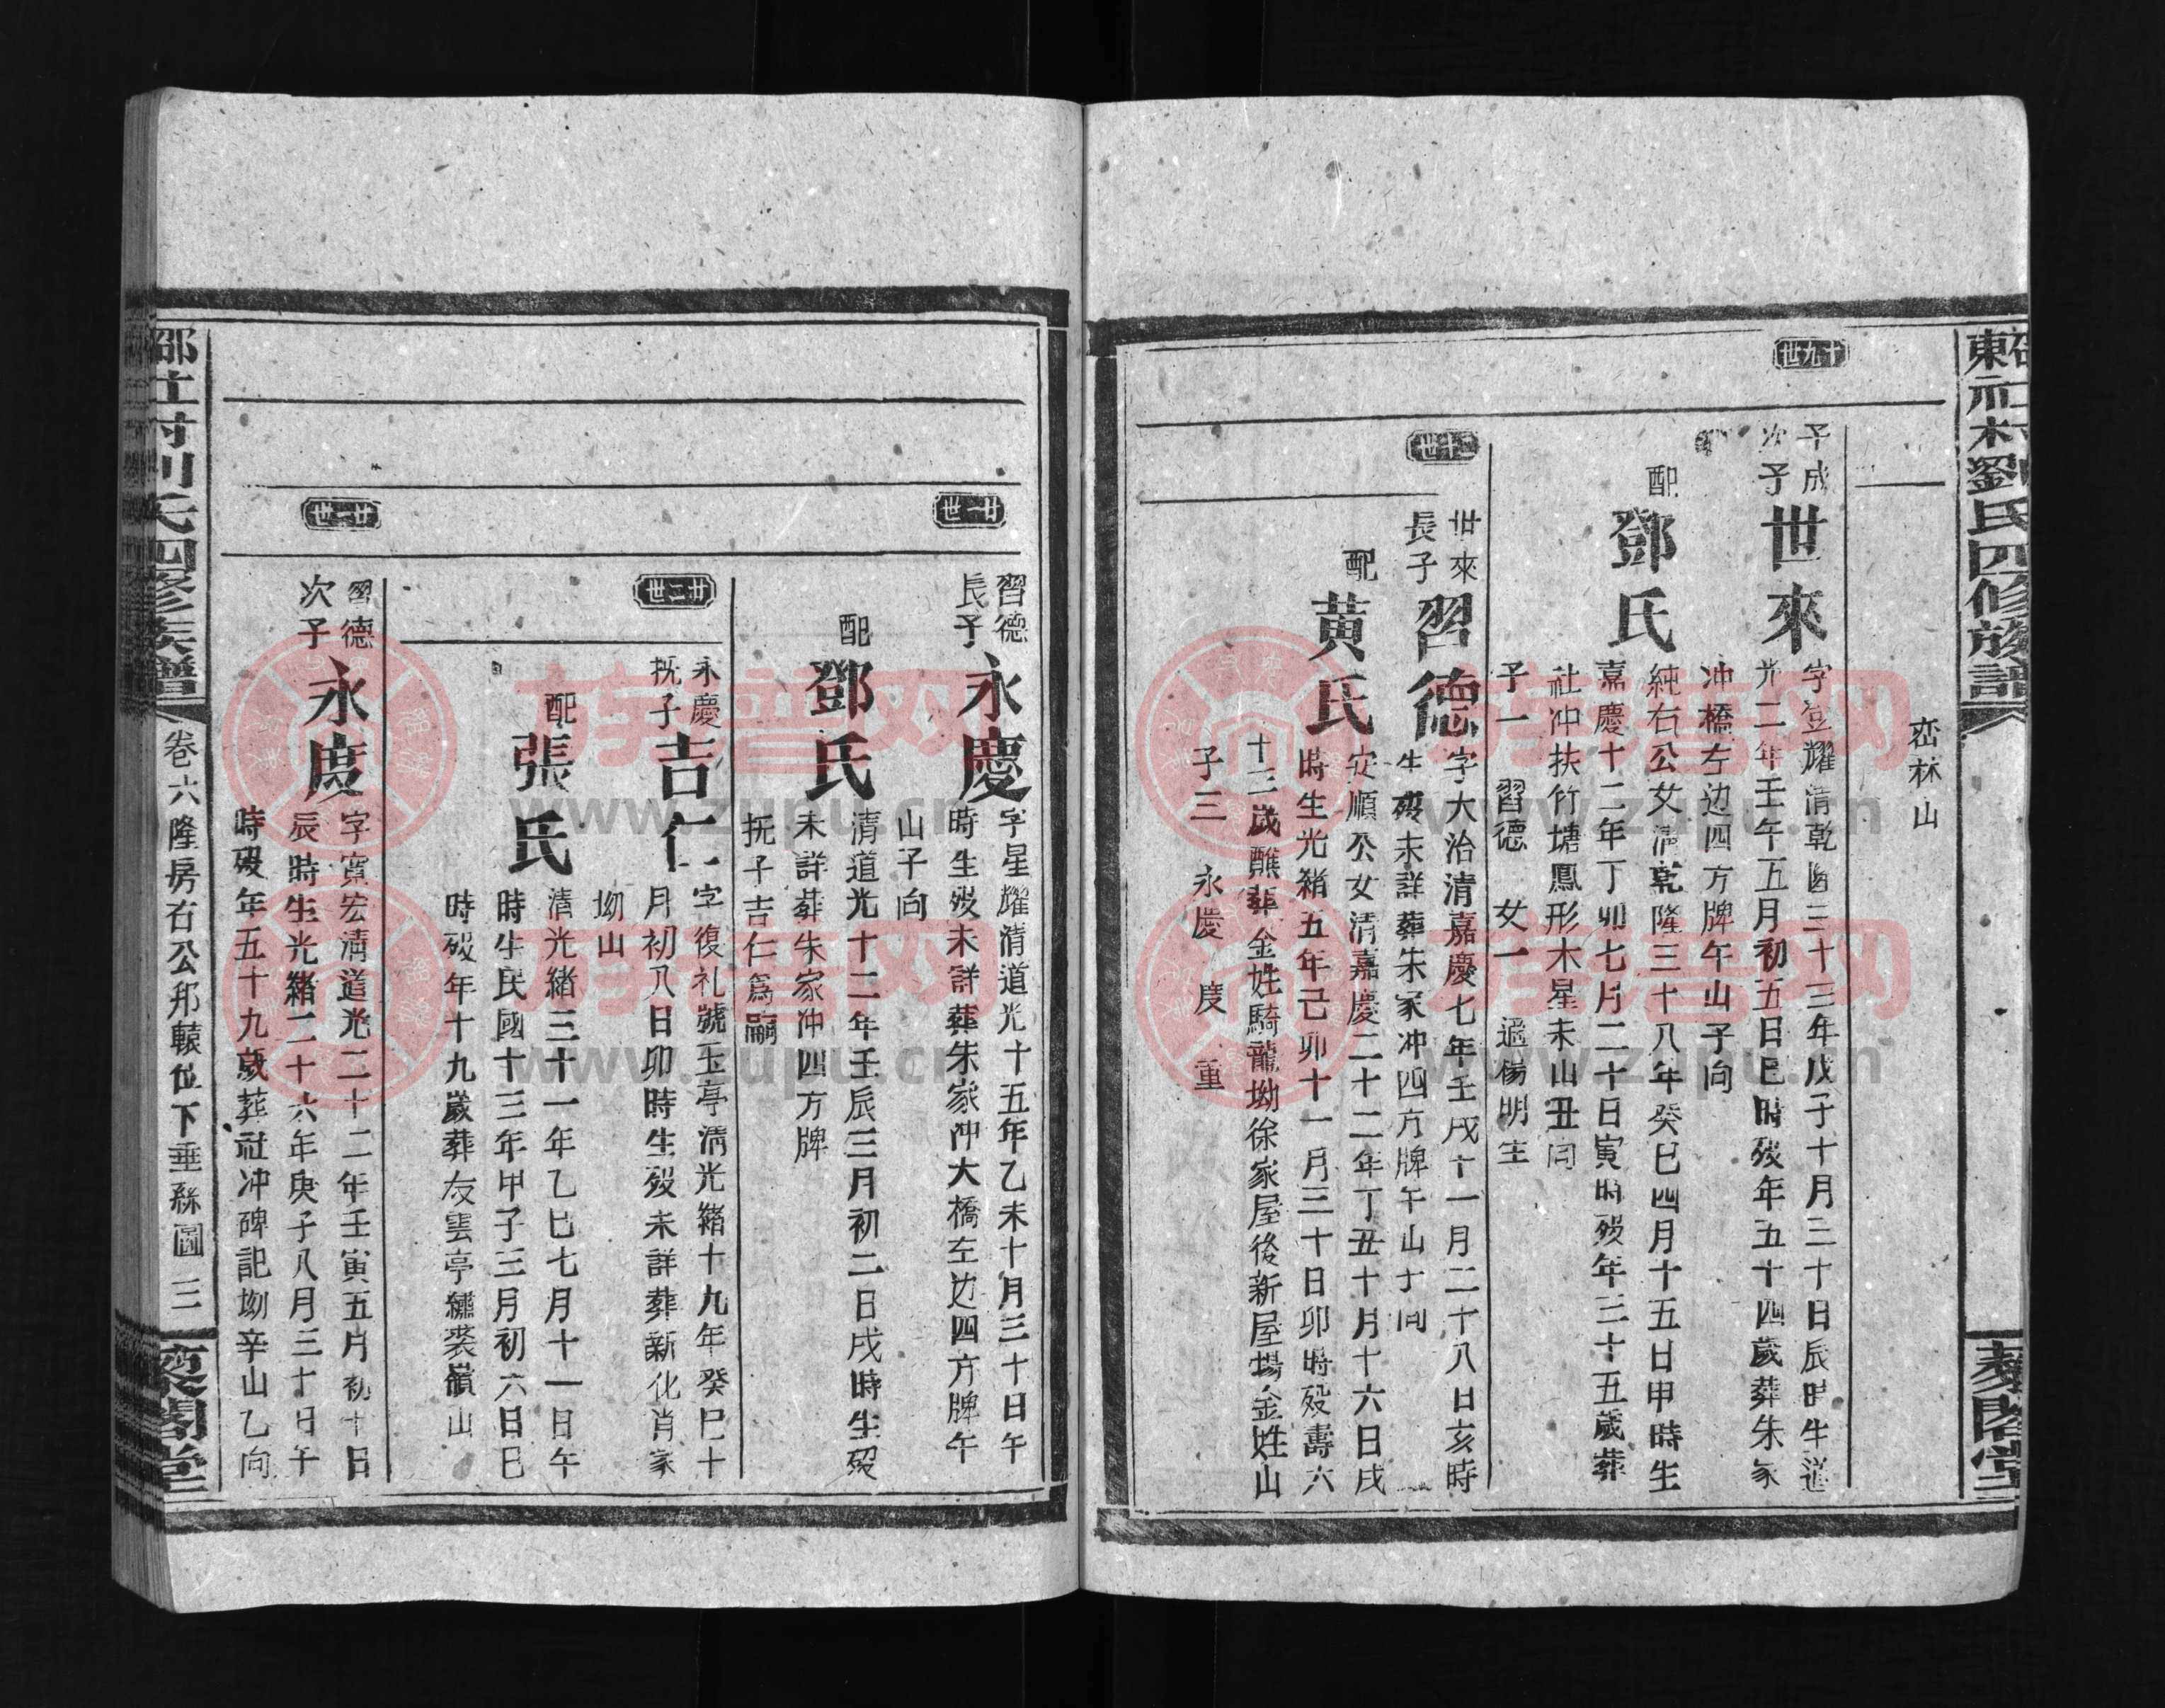 東社村劉氏四修族譜
藜閣堂
峦林山
十九世
予成
次子
世來
字登耀清乾隆三十三年戊子十月三十日辰時生道
光二年壬午五月初五日巳時歿年五十四歲葬朱家
冲橋左边四方牌午山子向
配
鄧氏
純右公女清乾隆三十八年癸巳四月十五日甲時生
嘉慶十二年丁卯七月二十日寅時歿年三十五歲葬
社冲扶竹塘鳳形木星未山丑向
子一 習德 女一 適楊明主
二十世
世來
長子
習德
字大治清嘉慶七年壬戌十一月二十八日亥時
生歿未詳葬朱家冲四方牌午山子向
配
黄氏
安順公女清嘉慶二十二年丁丑十月十六日戌
時生光緒五年己卯十一月三十日卯時歿壽六
十三歲醮葬金姓騎龍坳徐家屋後新屋場金姓山
子三 永慶 度 重
廿一世
習德
長子
永慶
字星耀清道光十五年乙未十月三十日午
時生歿未詳葬朱家冲大橋左边四方牌午
山子向
配
鄧氏
清道光十二年壬辰三月初二日戌時生歿
未詳葬朱家冲四方牌
抚子吉仁爲嗣
廿二世
永慶
抚子
吉仁
字復礼號玉亭清光緒十九年癸巳十
月初八日卯時生歿未詳葬新化肖家
坳山
配
張氏
清光緒三十一年乙巳七月十一日午
時生民國十三年甲子三月初六日巳
時歿年十九歲葬友雲亭繡裘嶺山
廿一世
習德
次子
永度
字寬宏清道光二十二年壬寅五月初十日
辰時生光緒二十六年庚子八月三十日午
時歿年五十九歲葬社冲碑記坳辛山乙向
村劉氏四修族譜
卷六隆房右公邦轅位下垂絲圖
三
藜閣堂
族譜网
www.zupu.cn
族譜网
www.zupu.cn
族譜网
www.zupu.cn
族譜网
www.zupu.cn